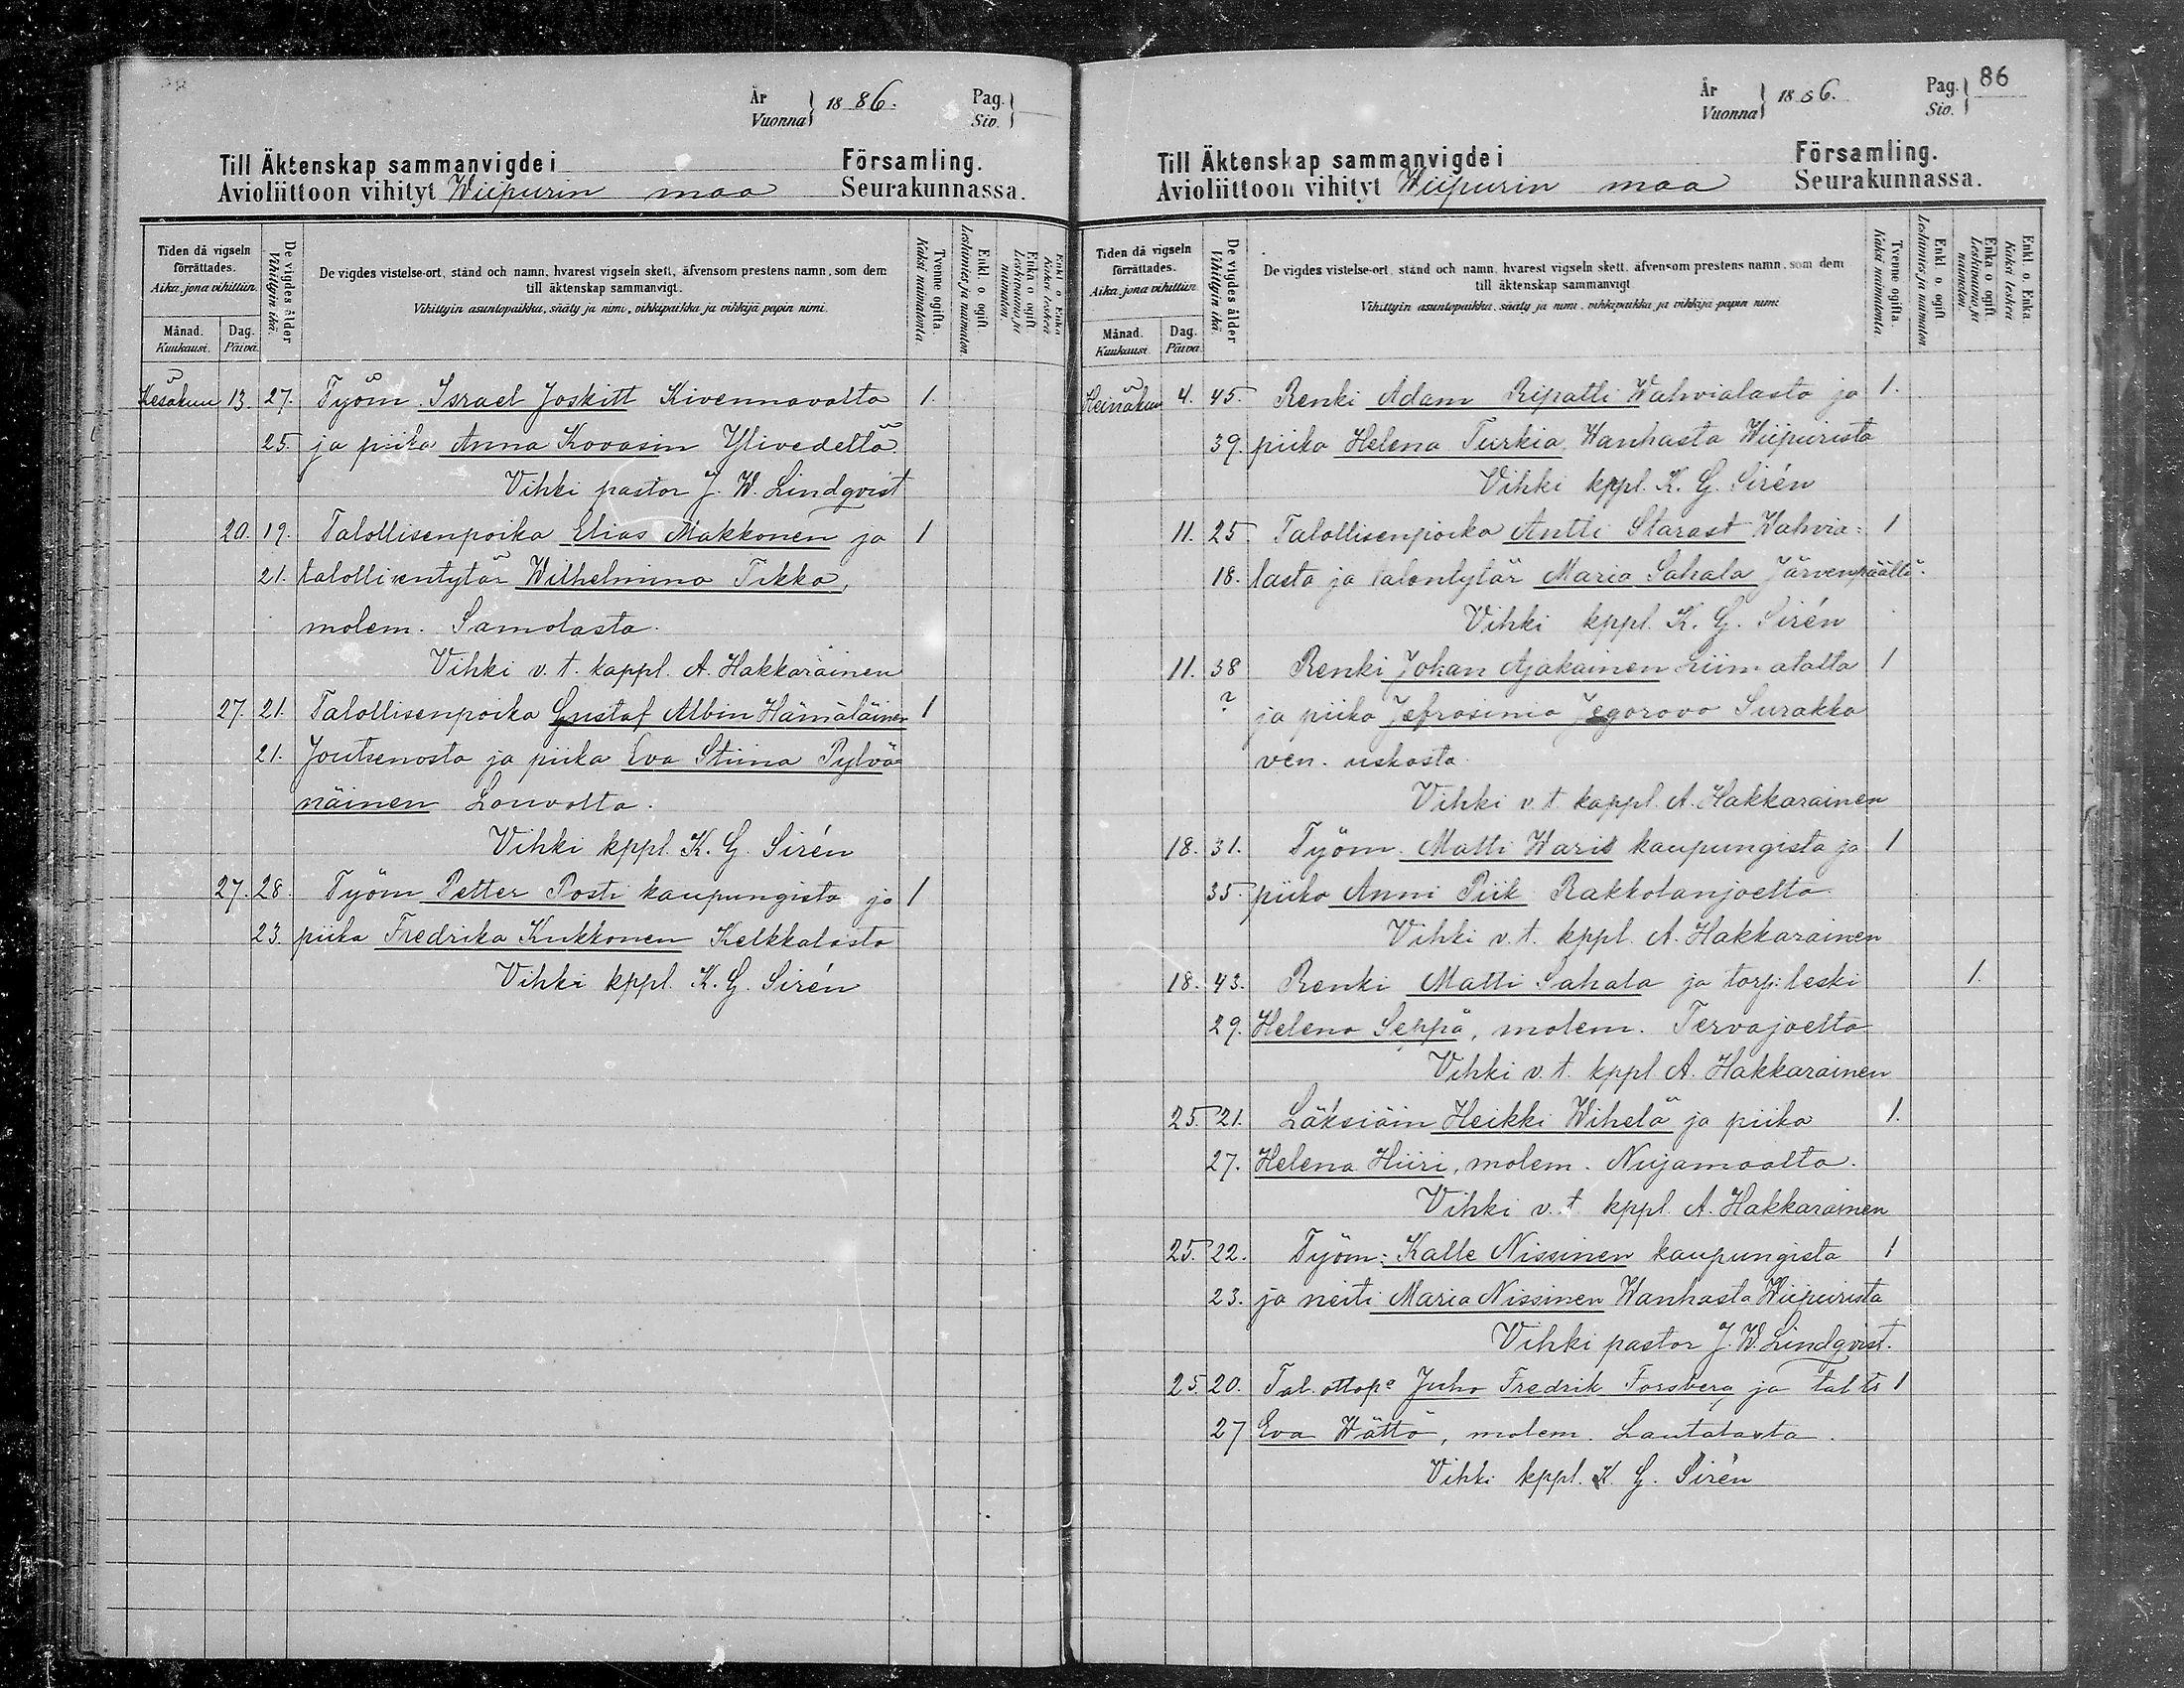 År
Vuonna } 1886. Pag.
Siv. }
Till Äktenskap sammanvigde i Församling.
Avioliittoon vihityt Wiipurin maa Seurakunnassa.
Tiden då vigseln förrättades.
Aika, jona vihittiin.
Månad.
Kuukausi.
Dag.
Päivä.
De vigdes ålder
Vihittyin ikä.
De vigdes vistelse-ort, stånd och namn, hvarest vigseln skett, äfvensom prestens namn, som dem
till äktenskap sammanvigt.
Vihittyin asuntopaikka, sääty ja nimi, vihkipaikka ja vihkijä papin nimi.
Tvenne ogifta.
Kaksi naimatonta.
Enkl. o. ogift.
Leskimies ja naimaton.
Enka o. ogift.
Leskivaimo ja naimaton.
Enkl. o. Enka.
Kaksi leskeä
Kesäkuu 13. 27. Työm. Israel Joskitt Kivennavalta 1.
25. ja piika Anna Kovasin Ylivedeltä
Vihki pastor J. W. Lindqvist
20. 19. Talollisenpoika Elias Makkonen ja 1
21. talollisentytär Wilhelmina Tikka,
molem. Samolasta.
Vihki v. t. kappl. A. Hakkarainen
27. 21. Talollisenpoika Gustaf Albin Hämäläinen 1
21. Joutsenosta ja piika Eva Stiina Pylvä=
näinen Louvolta.
Vihki kppl. K. G. Sirén
27. 28. Työm Petter Posti kaupungista ja 1
23. piika Fredrika Kukkonen Kelkkalasta
Vihki kppl. K. G. Sirén
År
Vuonna } 1886. Pag.
Siv. } 86
Till Äktenskap sammanvigde i Församling.
Avioliittoon vihityt Wiipurin maa Seurakunnassa.
Tiden då vigseln förrättades.
Aika, jona vihittiin.
Månad.
Kuukausi.
Dag.
Päivä.
De vigdes ålder
Vihittyin ikä.
De vigdes vistelse-ort, stånd och namn, hvarest vigseln skett, äfvensom prestens namn, som dem
till äktenskap sammanvigt.
Vihittyin asuntopaikka, sääty ja nimi, vihkipaikka ja vihkijä papin nimi.
Tvenne ogifta.
Kaksi naimatonta.
Enkl. o. ogift.
Leskimies ja naimaton.
Enka o. ogift.
Leskivaimo ja naimaton.
Enkl. o. Enka.
Kaksi leskeä
Heinäkuu 4. 45. Renki Adam Ripatti Wahvialasta ja 1.
39. piika Helena Turkia, Wanhasta Wiipurista
Vihki kppl. K. G. Sirén
11. 25 Talollisenpoika Antti Starast Wahvia= 1
18. lasta ja talontytär Maria Sahala Järvenpäältä.
Vihki kppl. K. G. Sirén
11. 38 Renki Johan Ajakainen Liimatalta 1
? ja piika Jefrosinia Jegorova Surakka
ven. uskosta.
Vihki v. t. kappl. A. Hakkarainen
18. 31. Työm. Matti Waris kaupungista ja 1
35. piika Anni Piik Rakkolanjoelta
Vihki v. t. kppl. A. Hakkarainen
18. 43. Renki Matti Sahala ja torp: leski 1.
29. Helena Seppä, molem. Tervajoelta
Vihki v. t. kppl A. Hakkarainen
25. 21. Läksiäin Heikki Wihelä ja piika 1.
27. Helena Hiiri, molem. Nuijamaalta.
Vihki v. t kppl. A. Hakkarainen
25. 22. Työm: Kalle Nissinen kaupungista 1
23. ja neiti Maria Nissinen Wanhasta Wiipurista
Vihki pastor J. W. Lindqvist.
25. 20. Tal. ottop. Juho Fredrik Forsberg ja tal ts 1
27 Eva Wättö, molem. Lautalasta.
Vihki kppl. K. G. Sirén